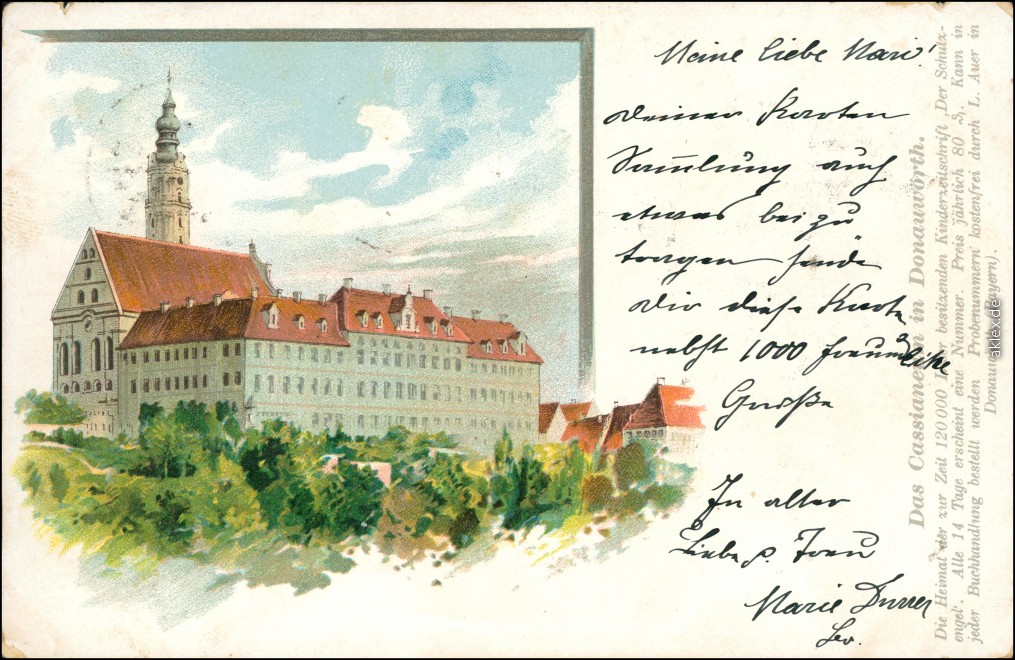 Meine liebe Mari!
deiner Karten
Sam̄lung auch
etwas beizu
tragen sende
dir diese Karte
nebst 1000 freundliche
Grüße
In alter
Liebe
Marie Durrer
Das Cassianeum in Donauwörth.
Die Heimat der zur Zeit 120000 besitzenden Kinderzeitschrift ‚Der Schutz-
engel‘. Alle 14 Tage erscheint eine Nummer. Preis jährlich 80 ₰. Kann in
jeder Buchhandlung bestellt werden Probenummern kostenfrei durch L. Auer in
Donauwörth (Bayern).
aklex.de